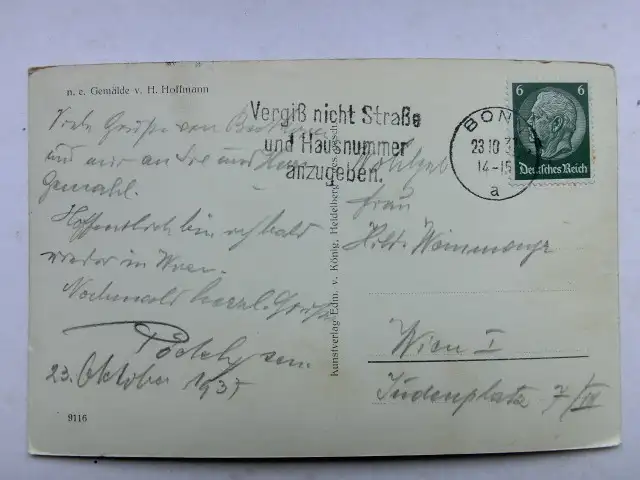 n. e. Gemälde v. H. Hoffmann
Viele Grüße von
und mir an Sie und Ihren
Gemahl.
Hoffentlich bin ich bald
wieder in Wien.
Nochmals herzl. Grüße
sen.
23. Oktober 1937
9116
Kunstverlag Edm. v. König, Heidelberg
Vergiß nicht Straße
und Hausnummer
anzugeben.
BONN
23 10 37
14-15
a
6 6
Deutsches Reich
Frau
Wien I
Judenplatz 7/IV